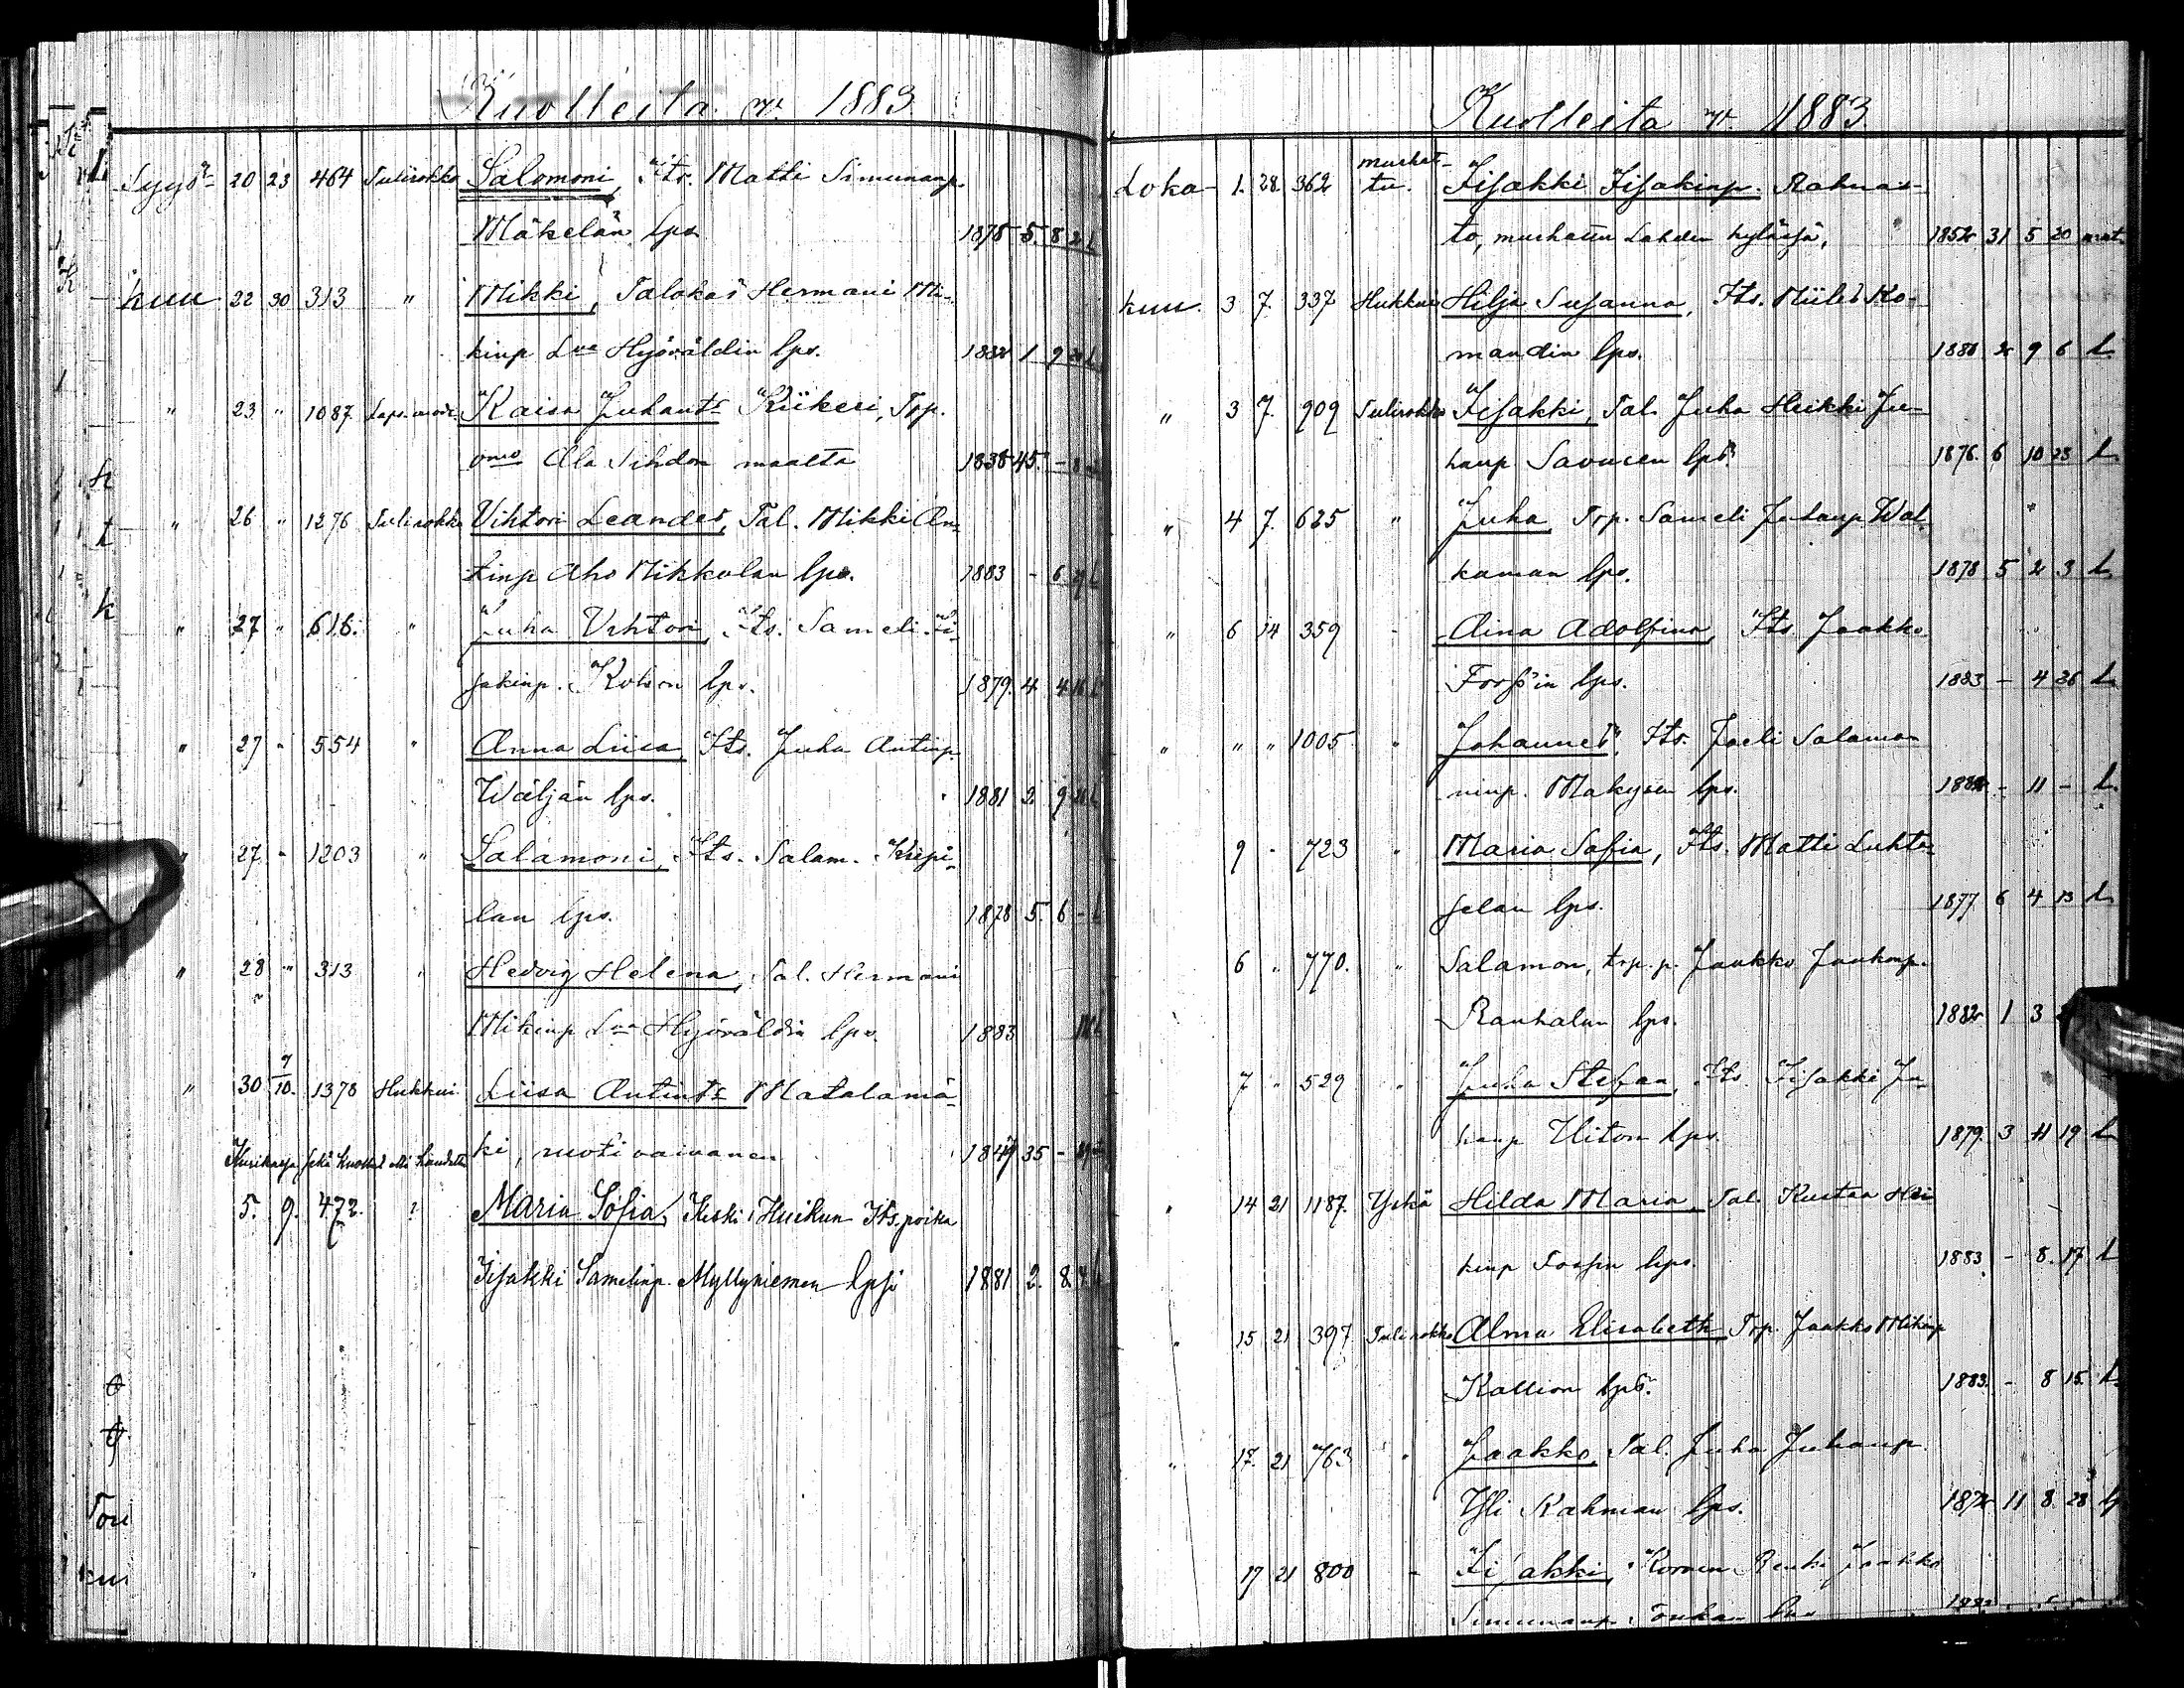 Kuolleita v. 1883
Syys- 20 23 464 Tulirokko Salomoni, Its. Matti Simunanp.
Mäkelän lps. 1878 5 8 2 L
kuu 22 30 313 " Mikki, Talokas Hermani Mi-
kinp Hyöväldin lps. 1882 1 9
" 23 " 1087 Kaisa Juhant: Riikeri, Trp.
Ala maalta 1838 45 -
" 26 " 1276 Tulirokko Vihtori Leander, Tal. Mikki An-
tinp Aho Mikkolan lps. 1883 - 6 L
" 27 " 616. " Juha Vihtori, Its. Sameli Ii-
sakinp. lps. 1879. 4 4 16 L
" 27 " 554 " Anna Liisa Its. Juha Antinp.
Wäljän lps. 1881 2 9 L
" 27 - 1203 " Salamoni, Its. Salam.
lan lps. 1878 5. 6 - L
" 28 " 313 " Hedvig Helena, Tal. Hermani
Mikinp Hyöväldin lps. 1883
" 30 7/10. 1378 Hukkui Liisa Antint: Matalamä-
ki, ruotivaivanen 35 -
5. 9. 472. ? Maria Sofia, Keski Huikun Its. poika
Iisakki Samelinp. Myllyniemen lpsi 1881 2. 8
Kuolleita v. 1883.
Loka- 1. 28. 362 murhat-
tu. Iisakki Iisakinp. Rahnas-
to, murhattu Lahden kylässä, 1852 31 5 20 nat.
kuu. 3 7. 337 Hukkui Hilja Susanna, Its. Ko-
mandin lps. 1880 2 9 6 L
" 3 7. 909 Tulirokko Iisakki, Tal. Juha Heikki Ju-
hanp Savusen lps. 1876. 6 10 23 L
" 4 7. 625 " Juha Trp. Sameli Juhanp Wal-
kaman lps. 1878 5 2 3 L
" 6 14 359 - Aina Adolfina, Its. Jaakko
Forss'in lps. 1883 - 4 26 L
" " " 1005 " Johannes, Its. Jaeli Salamo-
ninp. Makysen lps. 1882 - 11 - L
9 - 723 " Maria Sofia, Its. Matti Luhta-
selan lps. 1877 6 4 13 L
6 " 770. " Salamon, trp. p. Jaakko Jaakonp.
Rauhalan lps. 1882 1 3
7 " 529 " Juha Stefan, Its. Iisakki Ju-
hanp Uiton lps. 1879. 3 11 19 L
" 14 21 1187. Yskä Hilda Maria, Tal. Kustaa Hei
kinp Forssin lps. 1883 - 8. 17 L
" 15 21 397 Tulirokko Alma Elisabeth, Trp. Jaakko Mikinp
Kallion lps. 1883. - 8 15 L
" 17. 21 763 " Jaakko, Tal. Juha Juhanp.
Yli Rahman lps. 1872 11 8. 28
17 21 800 - Iisakki, Korven Renki Jaakko
Simunanp. Touka lps